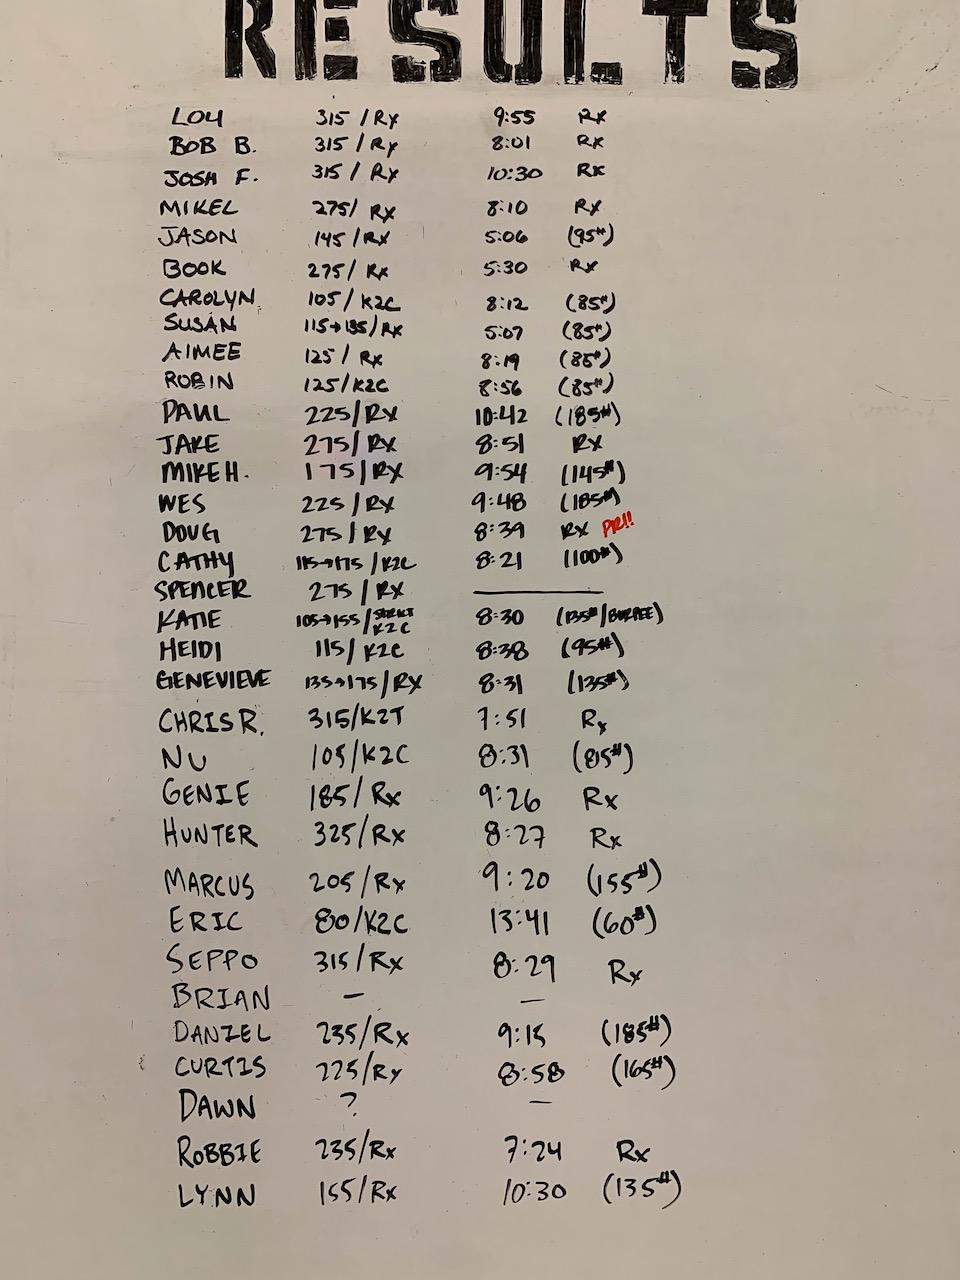 RESULTS
LOU 315 / Rx 9:55 Rx
BOB B. 315 / Rx 8:01 Rx
JOSH F. 315 / Rx 10:30 Rx
MIKEL 275/ Rx 8:10 Rx
JASON 145 / Rx 5:06 (95#)
BOOK 275/ Rx 5:30 Rx
CAROLYN 105/ K2C 8:12 (85#)
SUSAN 115→135/Rx 5:07 (85#)
AIMEE 125/ Rx 8:19 (85#)
ROBIN 125/K2C 8:56 (85#)
PAUL 225/RX 10:42 (185#)
JAKE 275/RX 8:51 RX
MIKE H. 175/RX 9:54 (145#)
WES 225 / RX 9:48 (185#)
DOUG 275/RX 8:39 RX PR!!
CATHY 115→175 /K2C 8:21 (100#)
SPENCER 275 / RX
KATIE 105→155/STRICT K2C 8:30 (135#/BURPEE)
HEIDI 115/ K2C 8:38 (95#)
GENEVIEVE 135→175/RX 8:31 (135#)
CHRIS R. 315/K2T 7:51 Rx
NU 105/K2C 8:31 (85#)
GENIE 185/Rx 9:26 Rx
HUNTER 325/Rx 8:27 Rx
MARCUS 205/Rx 9:20 (155#)
ERIC 80/K2C 13:41 (60#)
SEPPO 315/Rx 8:29 Rx
BRIAN — —
DANIEL 235/Rx 9:15 (185#)
CURTIS 225/Rx 8:58 (165#)
DAWN ? —
ROBBIE 235/Rx 7:24 Rx
LYNN 155/Rx 10:30 (135#)